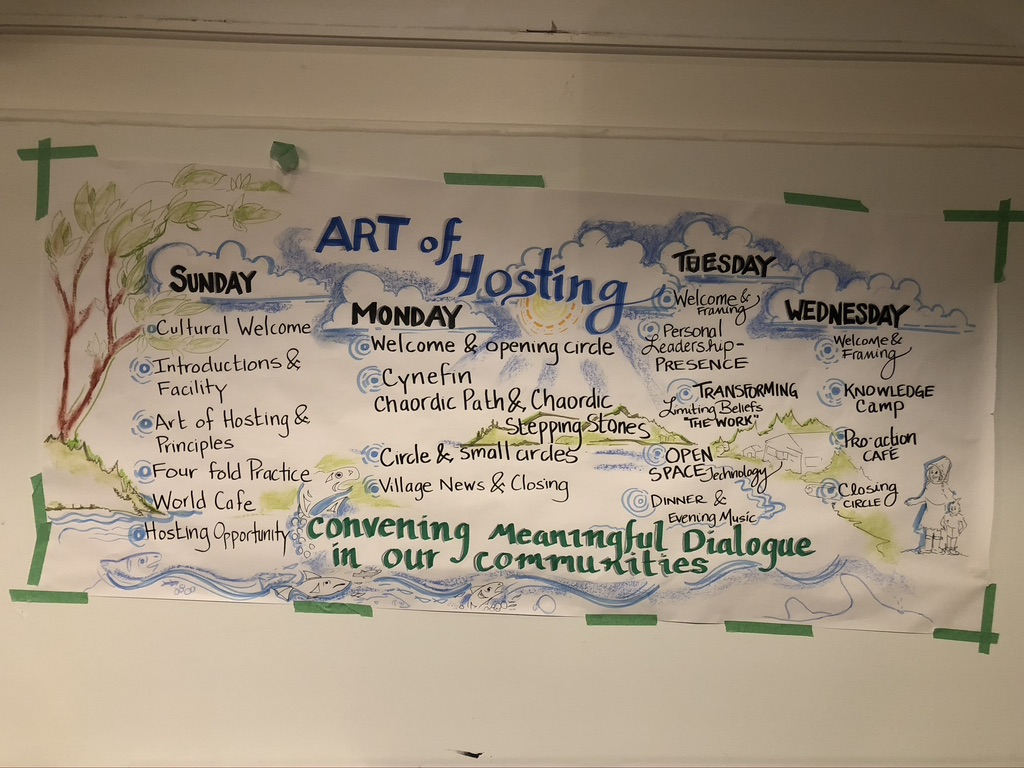 ART of
Hosting
SUNDAY
Cultural Welcome
Introductions &
Facility
Art of Hosting &
Principles
Four fold Practice
World Cafe
Hosting Opportunity
MONDAY
Welcome & opening circle
Cynefin
Chaordic Path &, Chaordic
Stepping Stones
Circle & small circles
Village News & Closing
TUESDAY
Welcome &
Framing
Personal
Leadership-
PRESENCE
TRANSFORMING
Limiting Beliefs
"THE WORK"
OPEN
SPACE Technology
DINNER &
Evening Music
WEDNESDAY
Welcome &
Framing
KNOWLEDGE
Camp
Pro-action
CAFE
Closing
CIRCLE
Convening Meaningful Dialogue
in our communities